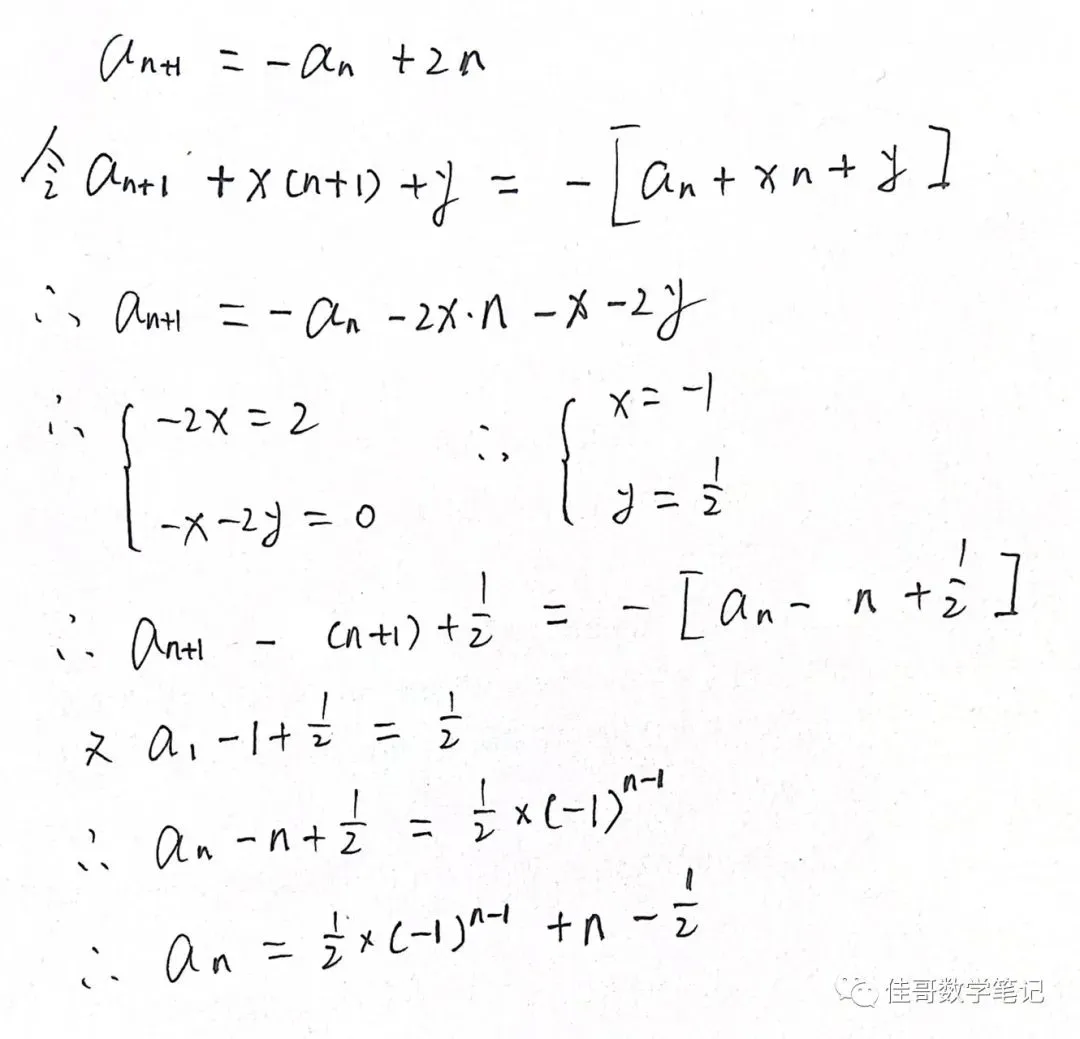 aₙ₊₁ = -aₙ + 2n
令 aₙ₊₁ + x(n+1) + y = -[aₙ + xn + y]
∴ aₙ₊₁ = -aₙ - 2x·n - x - 2y
∴ { -2x = 2 ∴ { x = -1
-x-2y = 0 y = 1/2
∴ aₙ₊₁ - (n+1) + 1/2 = -[aₙ - n + 1/2]
又 a₁ - 1 + 1/2 = 1/2
∴ aₙ - n + 1/2 = 1/2 × (-1)ⁿ⁻¹
∴ aₙ = 1/2 × (-1)ⁿ⁻¹ + n - 1/2
佳哥数学笔记